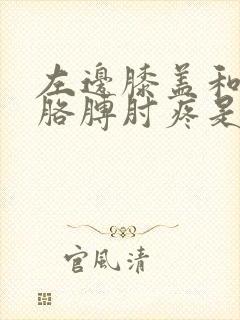 左邊膝盖和
胳膊肘疼是
官風清